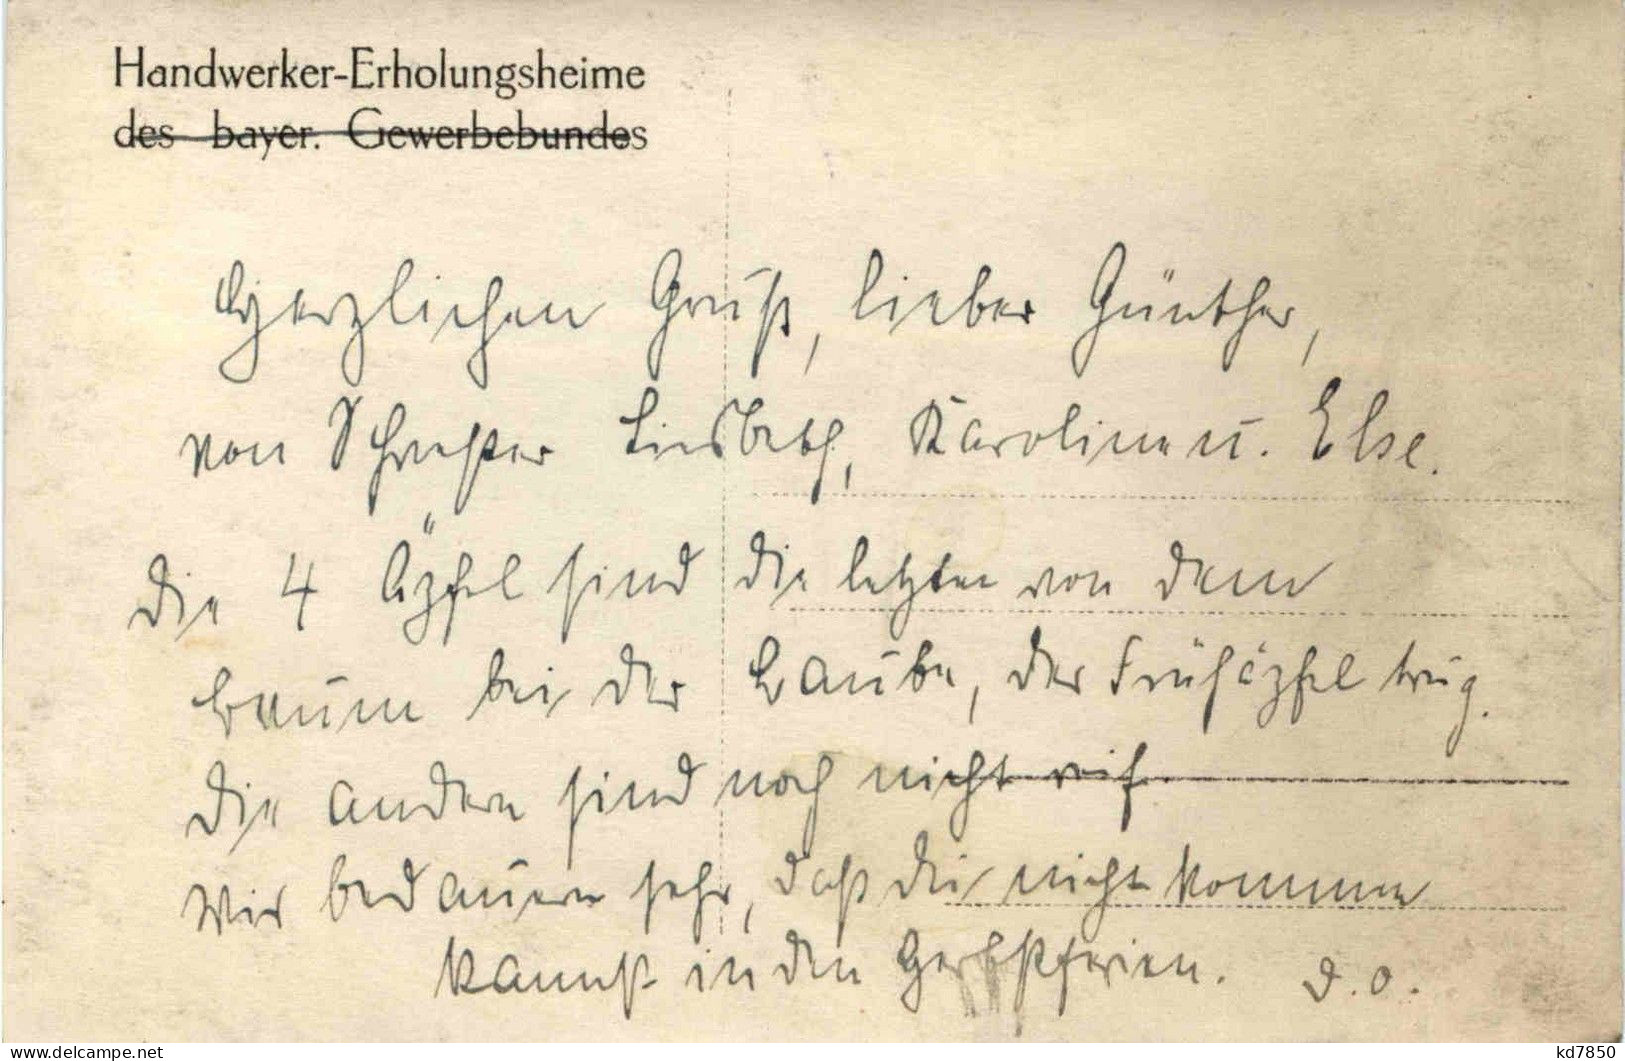 Handwerker-Erholungsheime
des bayer. Gewerbebundes
Herzlichen Gruß, lieber Günther,
von Schwester Liesbeth, Karoline u. Else.
Die 4 Äpfel sind die letzten von dem
Baum bei der Laube, der Frühäpfel trug.
Die andern sind noch nicht reif.
Wir bedauern sehr, daß du nicht kommen
kannst in den Herbstferien. D.O.
kd7850